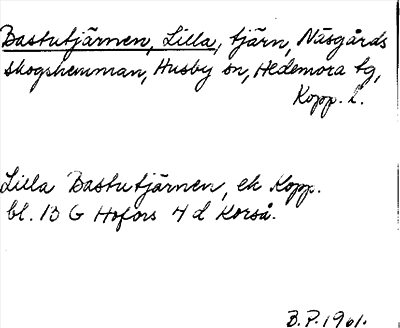 Bastutjärnen, Lilla, tjärn, Näsgårds
skogshemman, Husby sn, Hedemora tg,
Kopp. l.
Lilla Bastutjärnen, ek Kopp.
bl. 13 G Hofors 4 d Korså.
B.P. 1961.